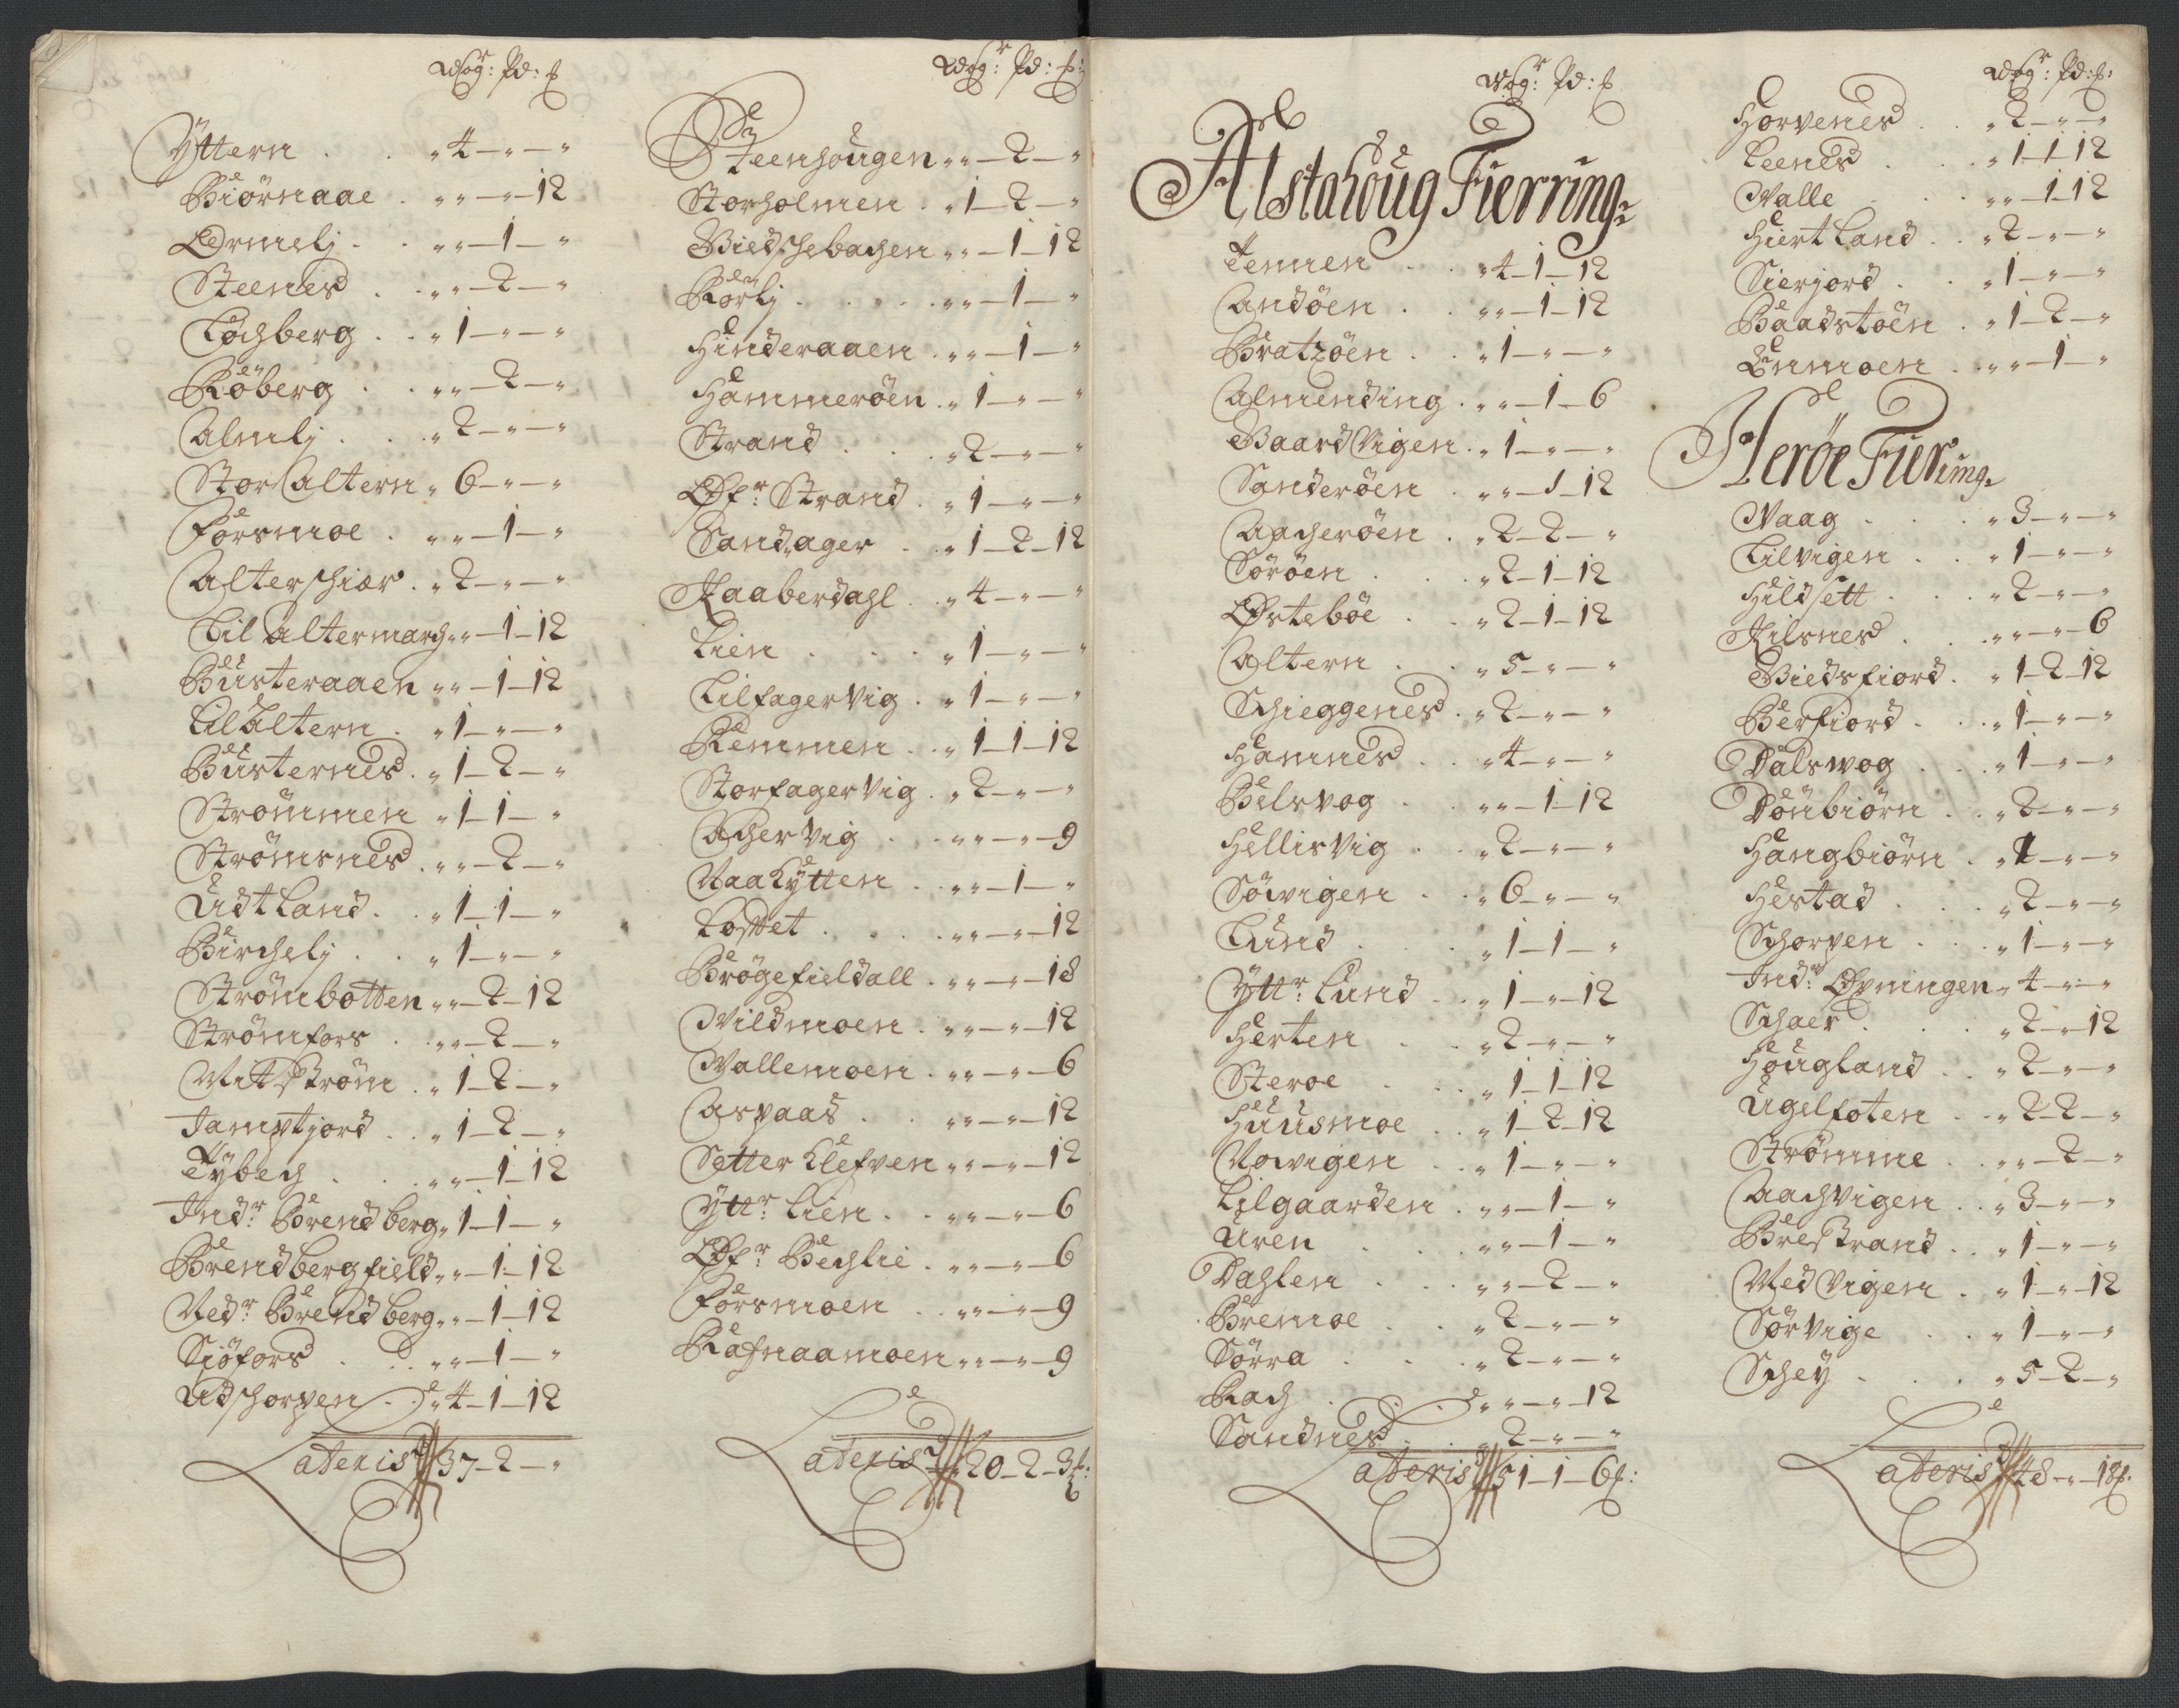 Wogr: Pd: £
Ÿttern . . „ 4 – „ – „
Biörnaae . „ „ – „ – 12
Ørmelj . . „ „ – 1 – „
Steenes . . „ „ – 2 – „
Lochberg . . „ 1 – „ – „
Röberg . . „ „ – 2 – „
Almlj . . „ 2 – „ – „
Stor Altern „ 6 – „ – „
Forsmoe . „ „ – 1 – „
Alterschiær . „ 2 – „ – „
Lil Altermarch „ „ – 1 – 12
Busteraaen „ „ – 1 – 12
Lilaltern . „ 1 – „ – „
Busternes . „ 1 – 2 – „
Strömmen „ 1 – 1 – „
Strömsnes . „ „ – 2 – „
Udtland . . „ 1 – 1 – „
Birchelj . . „ 1 – „ – „
Strömbotten „ „ – 2 – 12
Strömfors . „ „ – 2 – „
Mitström . „ 1 – 2 – „
Jamptjord . . „ 1 – 2 – „
Tÿbech . . „ „ – 1 – 12
Indr: Brendberg „ 1 – 1 – „
Brendbergfield „ „ – 1 – 12
Nedr: Brendberg „ „ – 1 – 12
Siöfors . . „ „ – 1 – „
Udschorpen . „ 4 – 1 – 12
Lateris 37 – 2 – „
Wogr: Pd: £:
Steenhougen „ „ – 2 – „
Storholmen . „ 1 – 2 – „
Biedschebachen „ „ – 1 – 12
Rörlj . . . „ „ – 1 – „
Hinderaaen . „ „ – 1 – „
Hammeröen . „ 1 – „ – „
Strand . . „ 2 – „ – „
Øfr: Strand . „ 1 – „ – „
Sandager . „ 1 – 2 – 12
Raaberdahl . „ 4 – „ – „
Lien . . . „ 1 – „ – „
Lilfagervig . „ 1 – „ – „
Remmen . . „ 1 – 1 – 12
Storfagervig . „ 2 – „ – „
Achervig . . „ „ – „ – 9
Naakÿtten . „ „ – 1 – „
Lofftet . . . „ „ – „ – 12
Brögefieldall . „ „ – „ – 18
Vildmoen . „ „ – „ – 12
Vallemoen . „ „ – „ – 6
Aspaas . . „ „ – „ – 12
Setterklefven „ „ – „ – 12
Ÿttr: Lien . . „ „ – „ – 6
Øfr: Bechlie . „ „ – „ – 6
Forsmoen . . „ „ – „ – 9
Rafnaamoen „ „ – „ – 9
Lateris 20 – 2 – 3 £:
Wogr: Pd: £
Alstahoug Fierring:
Tennen . . „ 4 – 1 – 12
Andöen . „ „ – 1 – 12
Bratzöen . . „ 1 – „ – „
Almending . „ „ – 1 – 6
Baardvigen . „ 1 – „ – „
Sanderöen . „ „ – 1 – 12
Aacheröen . „ 2 – 2 – „
Söröen . . „ 2 – 1 – 12
Østeböe . „ 2 – 1 – 12
Altern . . „ 5 – „ – „
Schieggenes . „ 2 – „ – „
Hamnes . . „ 4 – „ – „
Belsvog . „ „ – 1 – 12
Hellisvig . „ 2 – „ – „
Söwigen . „ 6 – „ – „
Lund . . . „ 1 – 1 – „
Ÿttr: Lund . . „ 1 – „ – 12
Herten . . „ 2 – „ – „
Steroe . . „ 1 – 1 – 12
Huusmoe . „ 1 – 2 – 12
Nowigen . . „ 1 – „ – „
Lilgaarden . „ „ – 1 – „
Uren . . . „ „ – 1 – „
Dahlen . . „ „ – 2 – „
Bremoe . . „ 2 – „ – „
Sörra . . . „ 2 – „ – „
Rach . . . „ „ – „ – 12
Sandnes . . „ 2 – „ – „
Lateris 51 – 1 – 6 £:
Wogr: Pd: £:
Horvenes . . „ 2 – „ – „
Leenes . . „ 1 – 1 – 12
Valle . . „ „ – 1 – 12
Hiertland . . „ 2 – „ – „
Sierjord . . „ 1 – „ – „
Baadstoën . „ 1 – 2 – „
Enmoen . „ „ – 1 – „
Heröe Fiering.
Vaag . . . „ 3 – „ – „
Lilvigen . . „ 1 – „ – „
Hildsett . . „ 2 – „ – „
Kilsnes . . „ „ – „ – 6
Biedsfiord . „ 1 – 2 – 12
Berfiord . . „ 1 – „ – „
Dalswog . . „ 1 – „ – „
Dönbiörn . „ 2 – „ – „
Hangbiörn . „ 1 – „ – „
Hestad . . „ 2 – „ – „
Schorpen . . „ 1 – „ – „
Indr: Øvningen „ 4 – „ – „
Schaer . . „ 2 – „ – 12
Hougland . . „ 2 – „ – „
Ugelfoten . „ 2 – 2 – „
Strömme . „ „ – 2 – „
Aachvigen . . „ 3 – „ – „
Brestrand . . „ 1 – „ – „
Medvigen . „ 1 – „ – 12
Sörvige . . „ 1 – „ – „
Schey . . . „ 5 – 2 – „
Lateris 48 – „ – 18 £.